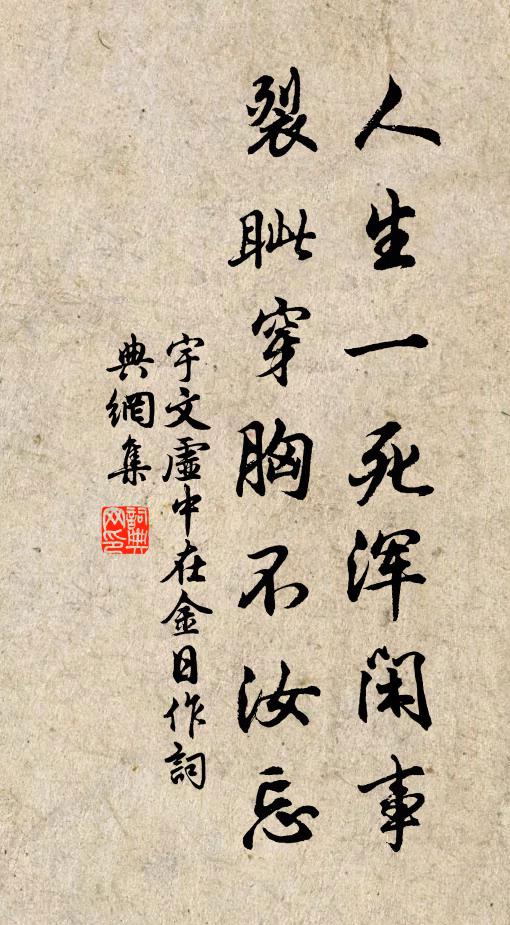 人生一死浑闲事
裂眦穿胸不汝忘
宇文虚中在金日作词
典網集
詞典网印